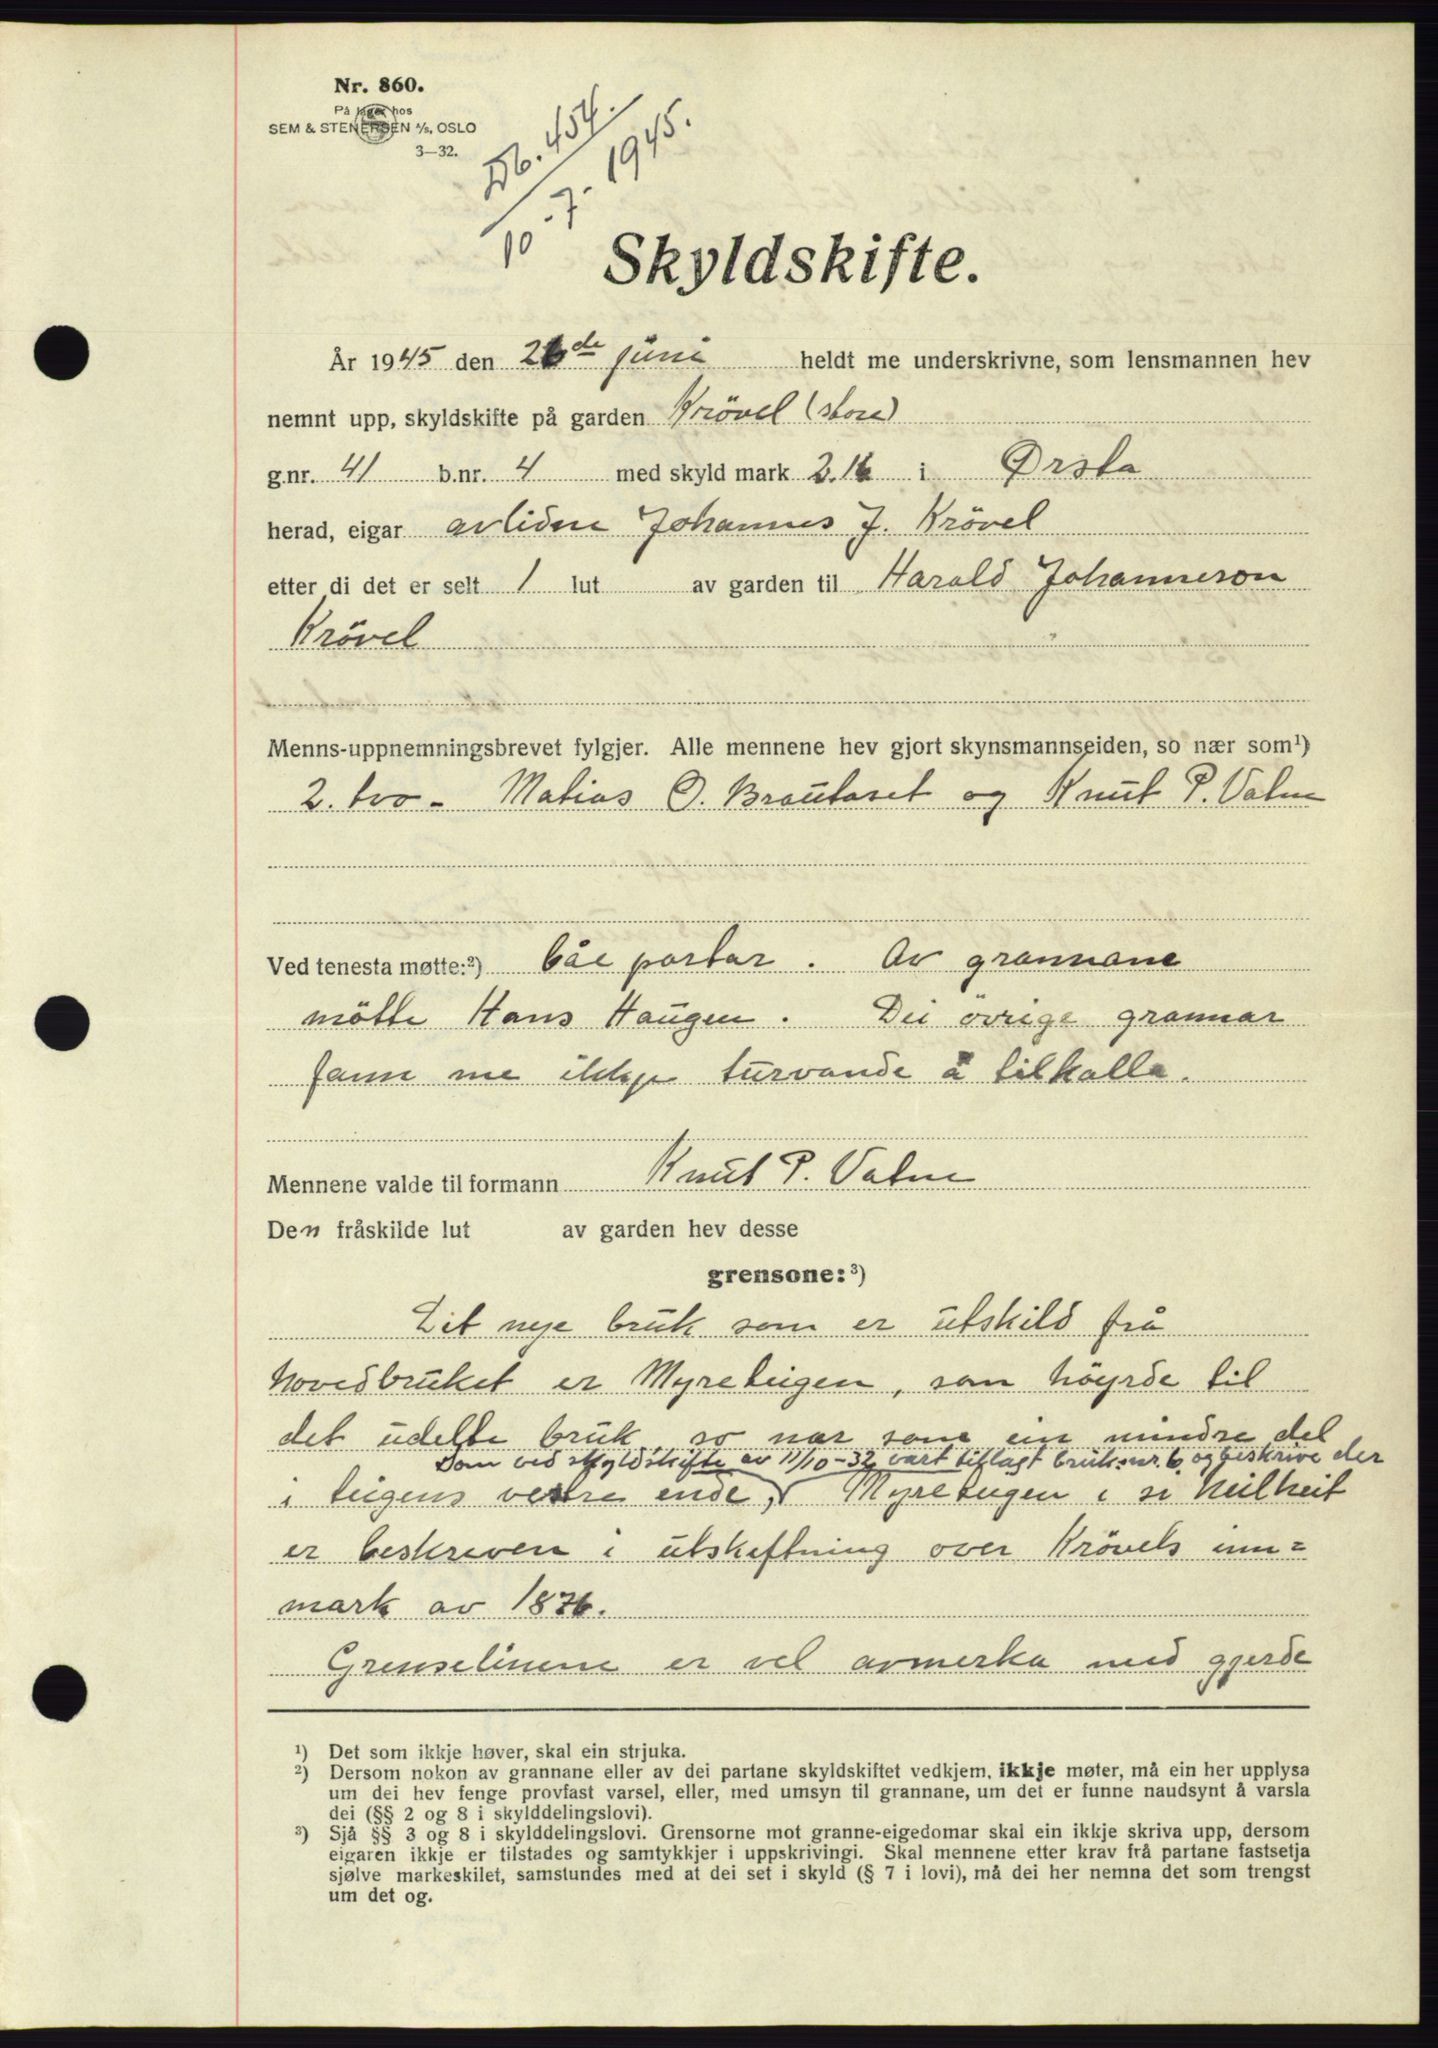 Nr. 860.
På lager hos
SEM & STENERSEN A/S, OSLO
3—32.
Db. 454.
10-7-1945.
Skyldskifte.
År 1945 den 26de juni heldt me underskrivne, som lensmannen hev
nemnt upp, skyldskifte på garden Krövel (store)
g.nr. 41 b.nr. 4 med skyld mark 2.16 i Ørsta
herad, eigar avlidne Johannes J. Krövel
etter di det er selt 1 lut av garden til Harald Johanneson
Krövel
Menns-uppnemningsbrevet fylgjer. Alle mennene hev gjort skynsmannseiden, so nær som¹)
2. tvo - Matias O. Brautaset og Knut P. Vatne
Ved tenesta møtte:²) båe partar. Av grannane
mötte Hans Haugen. Dei övrige grannar
fann me ikkje turvande å tilkalla.
Mennene valde til formann Knut P. Vatne
Den fråskilde lut av garden hev desse
grensone:³)
Dit nye bruk som er utskild frå
hovedbruket er Myreteigen, som höyrde til
det udelte bruk, so nær som ein mindre del
som ved skyldskifte av 11/10-32 vart tillagt bruk.nr. 6 og beskrive der
i teigens vestre ende, Myreteigen i si heilheit
er beskreven i utskiftning over Krövels inn=
mark av 1876.
Grenselinene er vel avmerka med gjerde
¹) Det som ikkje høver, skal ein strjuka.
²) Dersom nokon av grannane eller av dei partane skyldskiftet vedkjem, ikkje møter, må ein her upplysa
um dei hev fenge provfast varsel, eller, med umsyn til grannane, um det er funne naudsynt å varsla
dei (§§ 2 og 8 i skylddelingslovi).
³) Sjå §§ 3 og 8 i skylddelingslovi. Grensorne mot granne-eigedomar skal ein ikkje skriva upp, dersom
eigaren ikkje er tilstades og samtykkjer i uppskrivingi. Skal mennene etter krav frå partane fastsetja
sjølve markeskilet, samstundes med at dei set i skyld (§ 7 i lovi), må dei her nemna det som trengst
um det og.